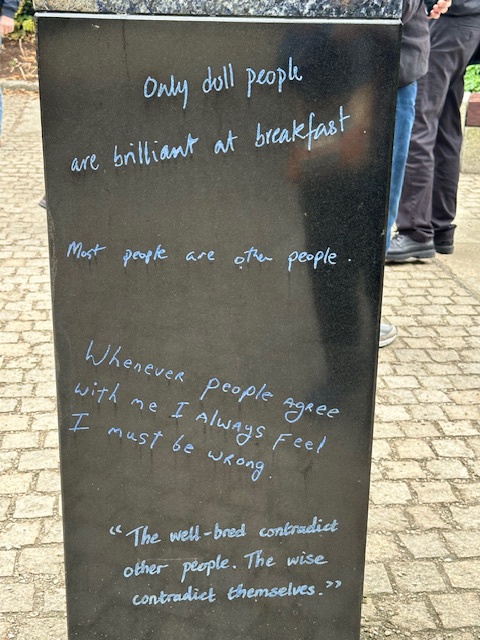 Only dull people
are brilliant at breakfast
Most people are other people.
Whenever people agree
with me I always feel
I must be wrong.
"The well-bred contradict
other people. The wise
contradict themselves."